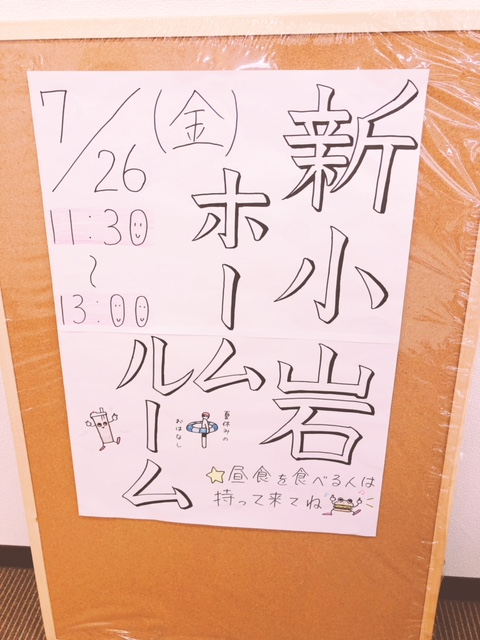 新小岩
ホームルーム
7/26(金)
11:30
~
13:00
夏休みの
おはなし
☆昼食を食べる人は
持って来てね